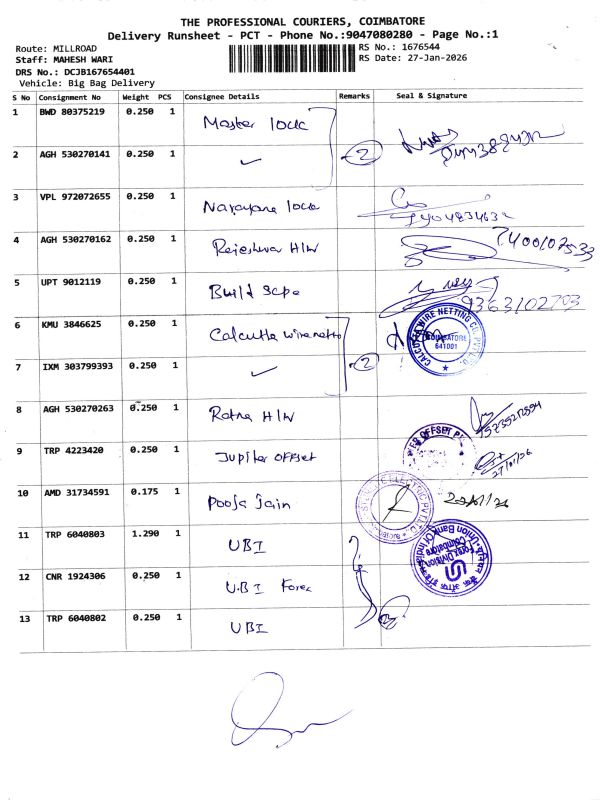 THE PROFESSIONAL COURIERS, COIMBATORE
Delivery Runsheet - PCT - Phone No.:9047080280 - Page No.:1
Route: MILLROAD
Staff: MAHESH WARI
DRS No.: DCJB167654401
Vehicle: Big Bag Delivery
RS No.: 1676544
RS Date: 27-Jan-2026
S No Consignment No Weight PCS Consignee Details Remarks Seal & Signature
1 BWD 80375219 0.250 1 Master
2 AGH 530270141 0.250 1 ✓ 2
3 VPL 972072655 0.250 1 Narayana
4 AGH 530270162 0.250 1 Rajeshwari H/W
5 UPT 9012119 0.250 1 Build 9363102703
6 KMU 3846625 0.250 1 Calcutta wire netto
CALCUTTA WIRE NETTING CO. PVT. LTD. COIMBATORE 641001
7 IXM 303799393 0.250 1 ✓ 2
8 AGH 530270263 0.250 1 Ratna H/W
9 TRP 4223420 0.250 1 Jupiter OFFSET OFFSET 27/01/26
10 AMD 31734591 0.175 1 Pooja Jain ELECTRIC PVT LTD
11 TRP 6040803 1.290 1 UBI
Union Bank Of India Forex Division Coimbatore
12 CNR 1924306 0.250 1 U.B I Forex
13 TRP 6040802 0.250 1 UBI